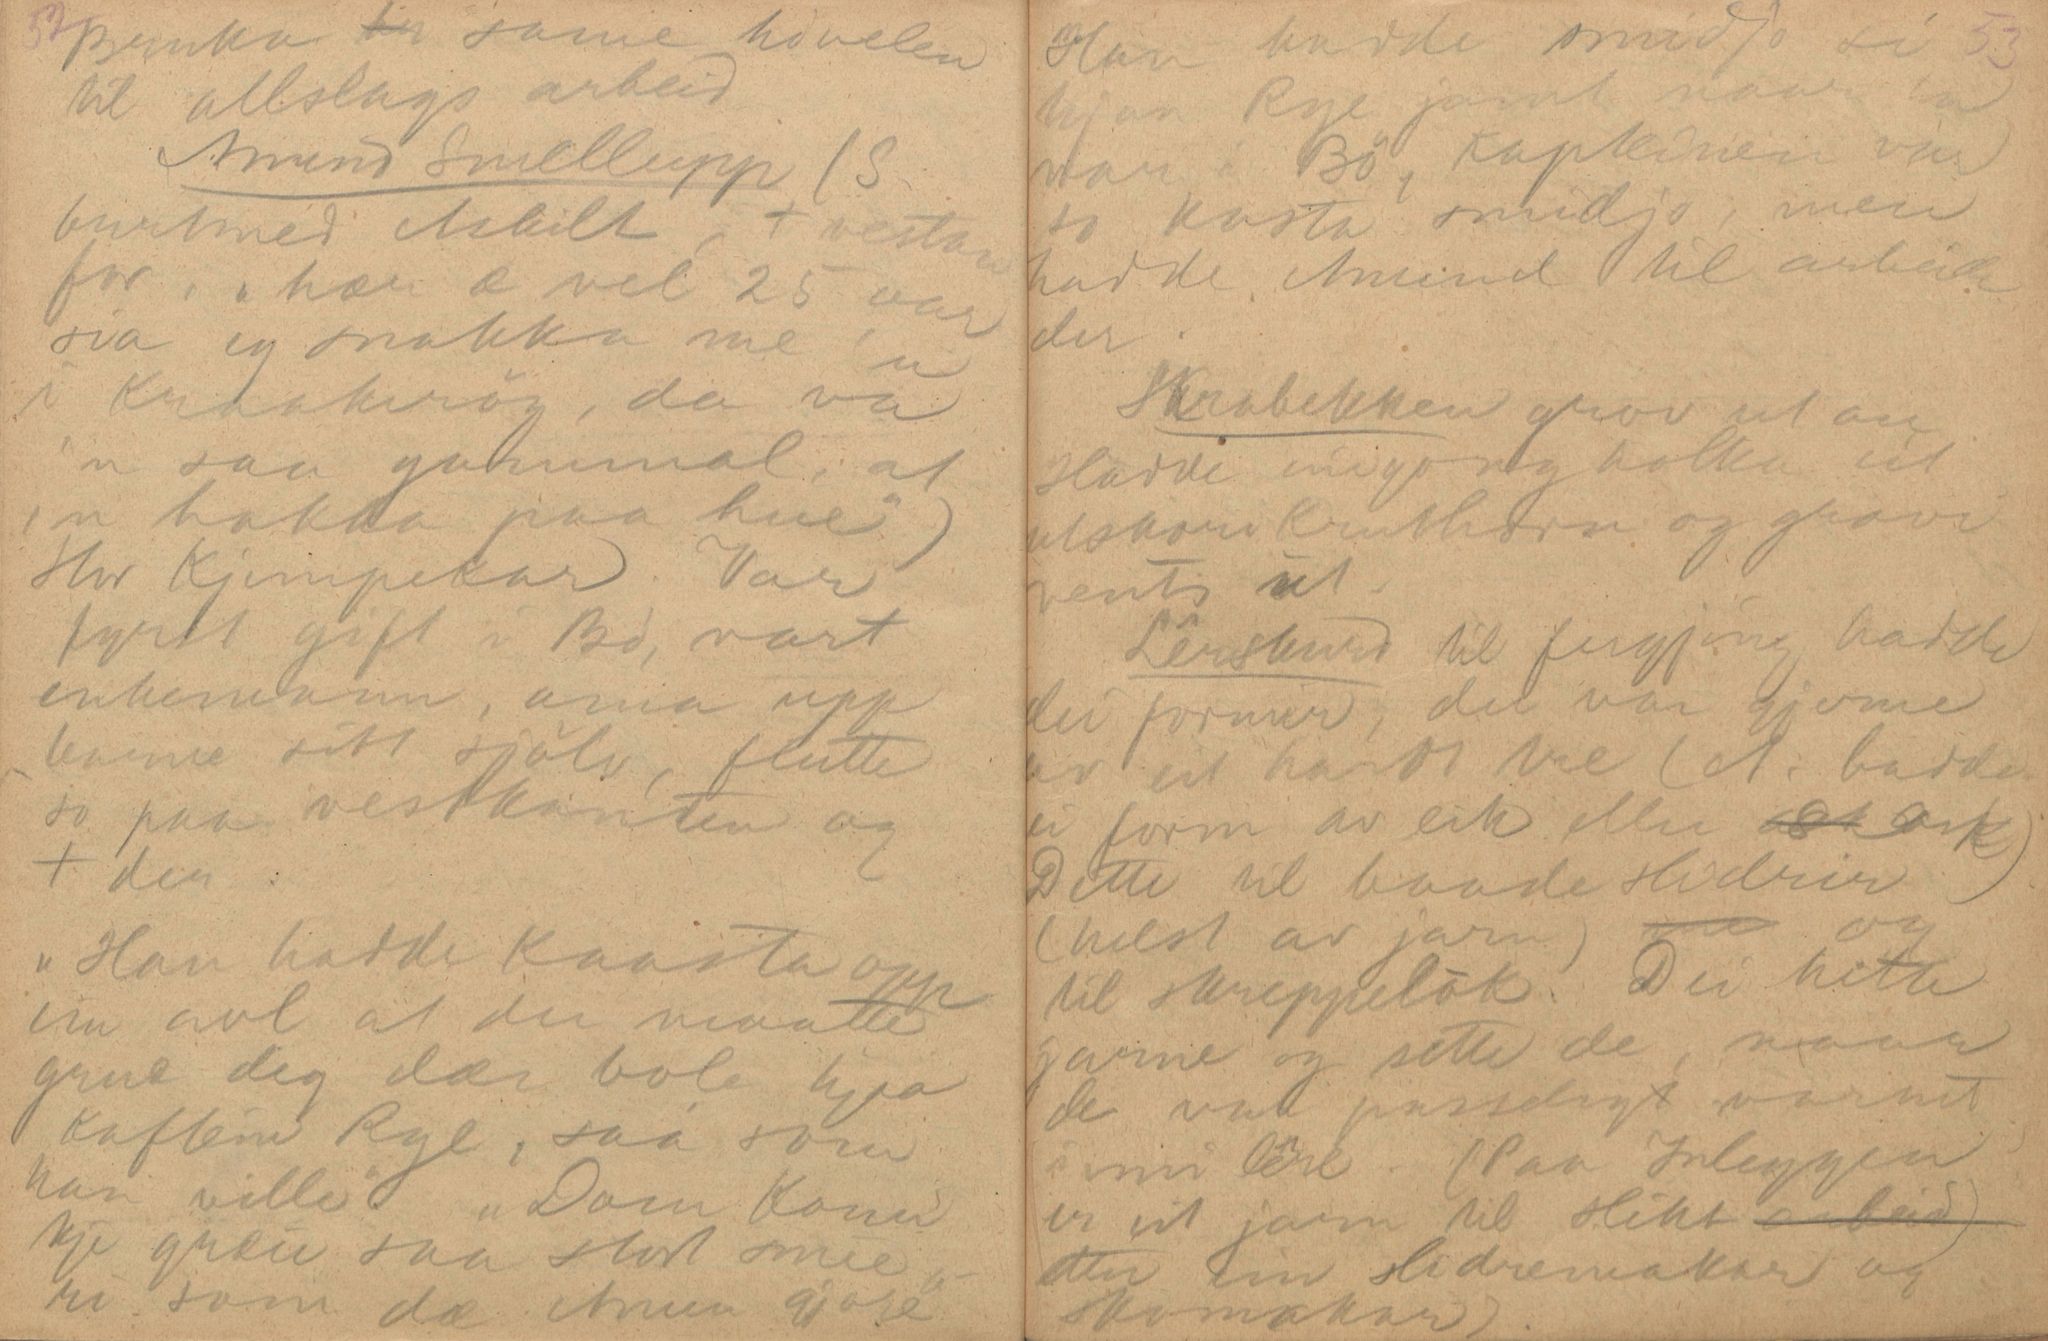 52
Bruka samme hövelen
til allslags arbeid
Amund Smellupp (S
burtmed Askilt, + vestan
for, „hær æ vel 25 aar
sia eg snakka me 'n
i Kraakerög, da va
'n saa gammal, at
'n hakka paa hue")
Stor Kjempekar. Var
fyrst gift i Bö, vart
enkemann, ama upp
barne sitt sjölv, flutte
so paa vestkanten og
+ der.
„Han hadde kaasta opp
ein avl at du maatte
grue deg dær bole hjaa
Kaftein Rye, saa som
han ville" „Dom Konu
kje græie saa stort smie
ri som dæ Amun gjore"
53
"Han hadde smidjo si
hjaa Rye jamt naar 'n
var i Bö, Kapteinen var
so kosta smidjo, men
hadde Amund til arbeide
der.
Skrabekken grov ut au
Hadde eingong holka ut
utskore Krutthorn og grave
vents ut.
Lêrskurd til fergjing hadde
dei former, dei var gjorne
av eit hardt tre (A. hadde
ei form av eik eller ask ask)
Dette til baade slidrer
(helst av jarn) og
til skreppelok. Dei hitte
jarne og sette de, naar
de var passelegt varmt
i mi lêre. (Paa Inleggen
er eit jarn til slikt arbeid)
etter ein slidremakar og
skomakar).